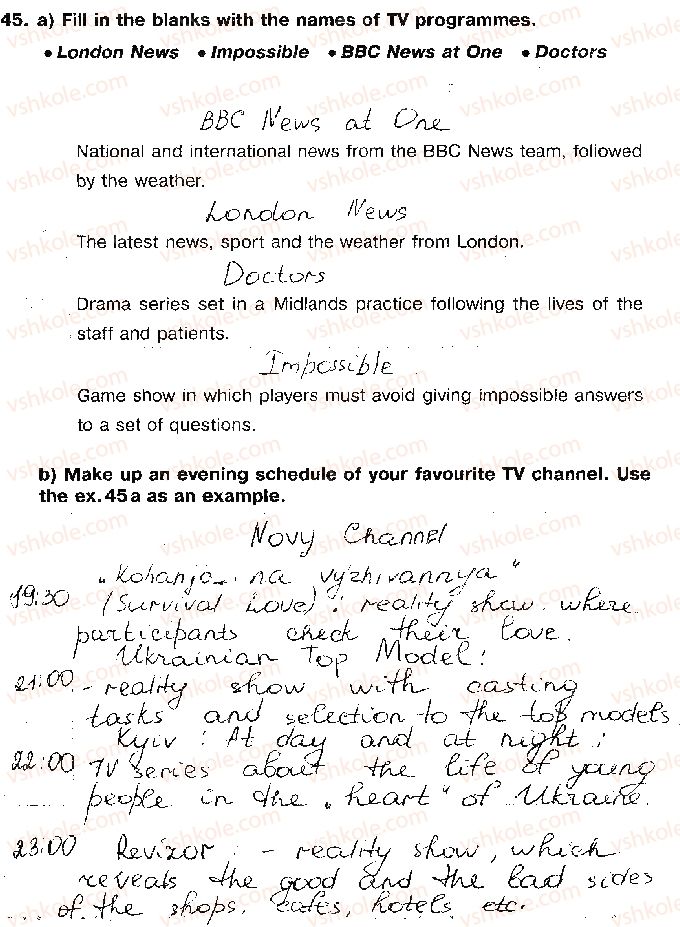 45. a) Fill in the blanks with the names of TV programmes.
• London News • Impossible • BBC News at One • Doctors
BBC News at One
National and international news from the BBC News team, followed
by the weather.
London News
The latest news, sport and the weather from London.
Doctors
Drama series set in a Midlands practice following the lives of the
staff and patients.
Impossible
Game show in which players must avoid giving impossible answers
to a set of questions.
b) Make up an evening schedule of your favourite TV channel. Use
the ex. 45 a as an example.
Novy Channel
„Kohanja na vyzhivannya"
19:30 (Survival Love): reality show where
participants check their love.
Ukrainian Top Model:
21:00 - reality show with casting
tasks and selection to the top models
Kyiv: At day and at night:
22:00 TV series about the life of young
people in the „heart" of Ukraine.
23:00 Revizor: - reality show, which
reveals the good and the bad sides
of the shops, cafes, hotels etc.